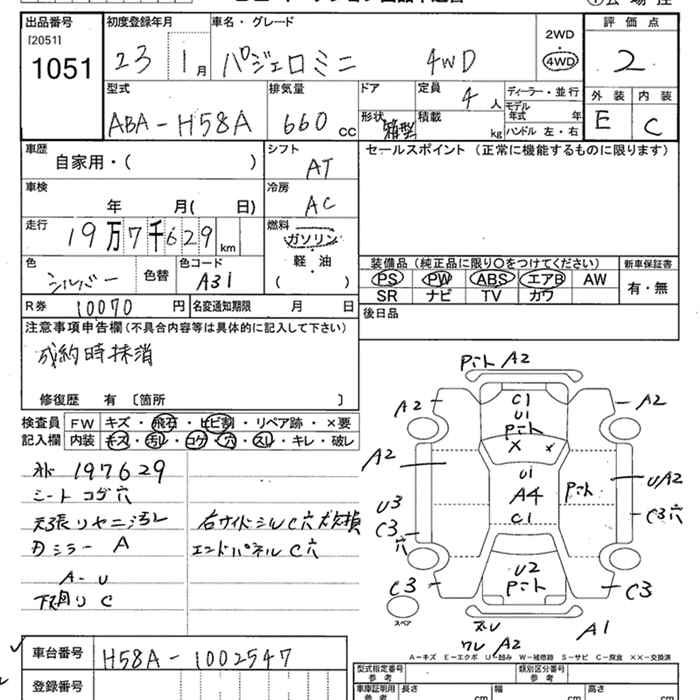 出品番号 初度登録年月 車名・グレード 評価点
[2051] 1051 23 1月 パジェロミニ 4WD 2WD 4WD 2
型式 排気量 ドア 定員 ディーラー・並行 外装 内装
ABA-H58A 660 CC 形状 箱型 積載 kg 4人 モデル年式 年 ハンドル 左・右 E C
車歴 シフト セールスポイント(正常に機能するものに限ります)
自家用・( ) AT
車検 年 月( 日) 冷房 AC
走行 19万7千629 km 燃料 ガソリン 軽・油 ( )
色 シルバー 色替 色コード A31
装備品(純正品に限り○をつけてください) 新車保証書
PS PW ABS エアB AW 有・無
SR ナビ TV カワ
R券 10070円 名変通知期限 月 日 後日品
注意事項申告欄(不具合内容等は具体的に記入して下さい)
成約時抹消
修復歴 有〔箇所 〕
検査員 FW キズ・飛石・ヒビ割・リペア跡・×要
記入欄 内装 キズ・汚レ・コゲ・穴・スレ・キレ・破レ
197629
シートコゲ穴
天張リヤニ汚レ 右サイドシルC穴 欠損
ミラー A エンドパネルC穴
A-U
下廻りC
A2
A2 C1 A2
U1
X x
A2 U1 UA2
A4
U3 C1 C3穴
C3
穴
C3 U2 C3
スペア
ズレ A1
ワレ A2
A-キズ E-エクボ U-凹み W-補修跡 S-サビ C-腐食 ××-交換済
車台番号 H58A-1002547 型式指定番号 参考 類別区分番号 参考
登録番号 車庫証明用 参考 長さ cm 幅 cm 高さ cm